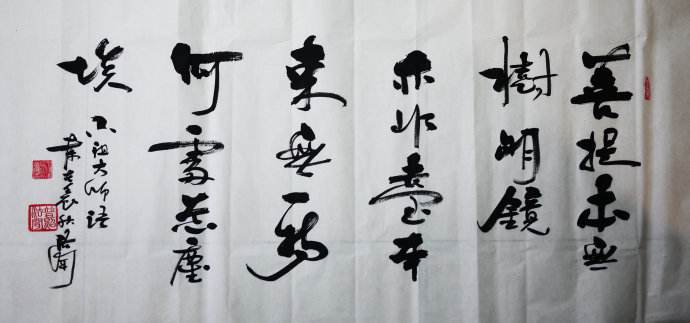 菩提本無
樹明鏡
亦非臺本
来無一物
何處惹塵
埃
六祖大師語